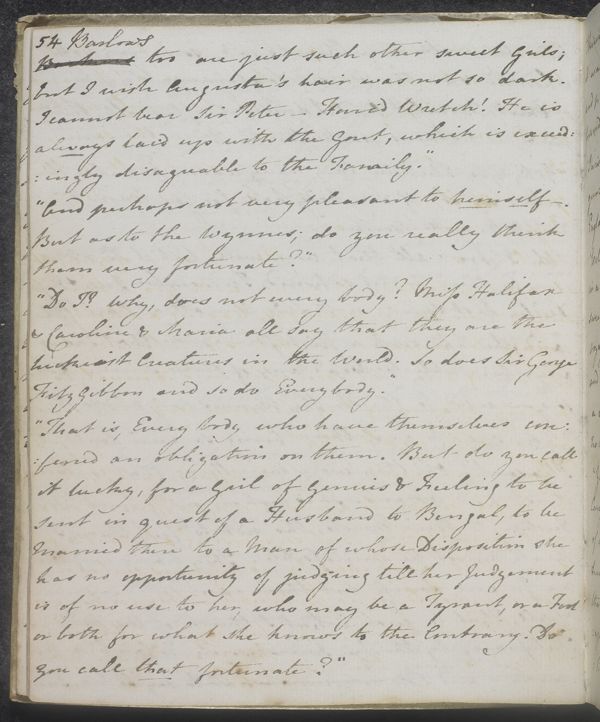 54 Barlows
too are just such other sweet Girls;
but I wish Augusta's hair was not so dark.
I cannot bear Sir Peter — Horrid Wretch! He is
always laid up with the Gout, which is exceed:
:ingly disagreable to the Family."
"And perhaps not very pleasant to himself—.
But as to the Wynnes; do you really think
them very fortunate?"
"Do I? Why, does not every body? Miss Halifax
& Caroline & Maria all say that they are the
luckiest Creatures in the World. So does Sir George
Fitzgibbon and so do Everybody."
"That is, Every body who have themselves con:
:ferred an obligation on them. But do you call
it lucky, for a Girl of Genius & Feeling to be
sent in quest of a Husband to Bengal, to be
married there to a Man of whose Disposition she
has no opportunity of judging till her Judgement
is of no use to her, who may be a Tyrant, or a Fool
or both for what she knows to the Contrary. Do
you call that fortunate?"